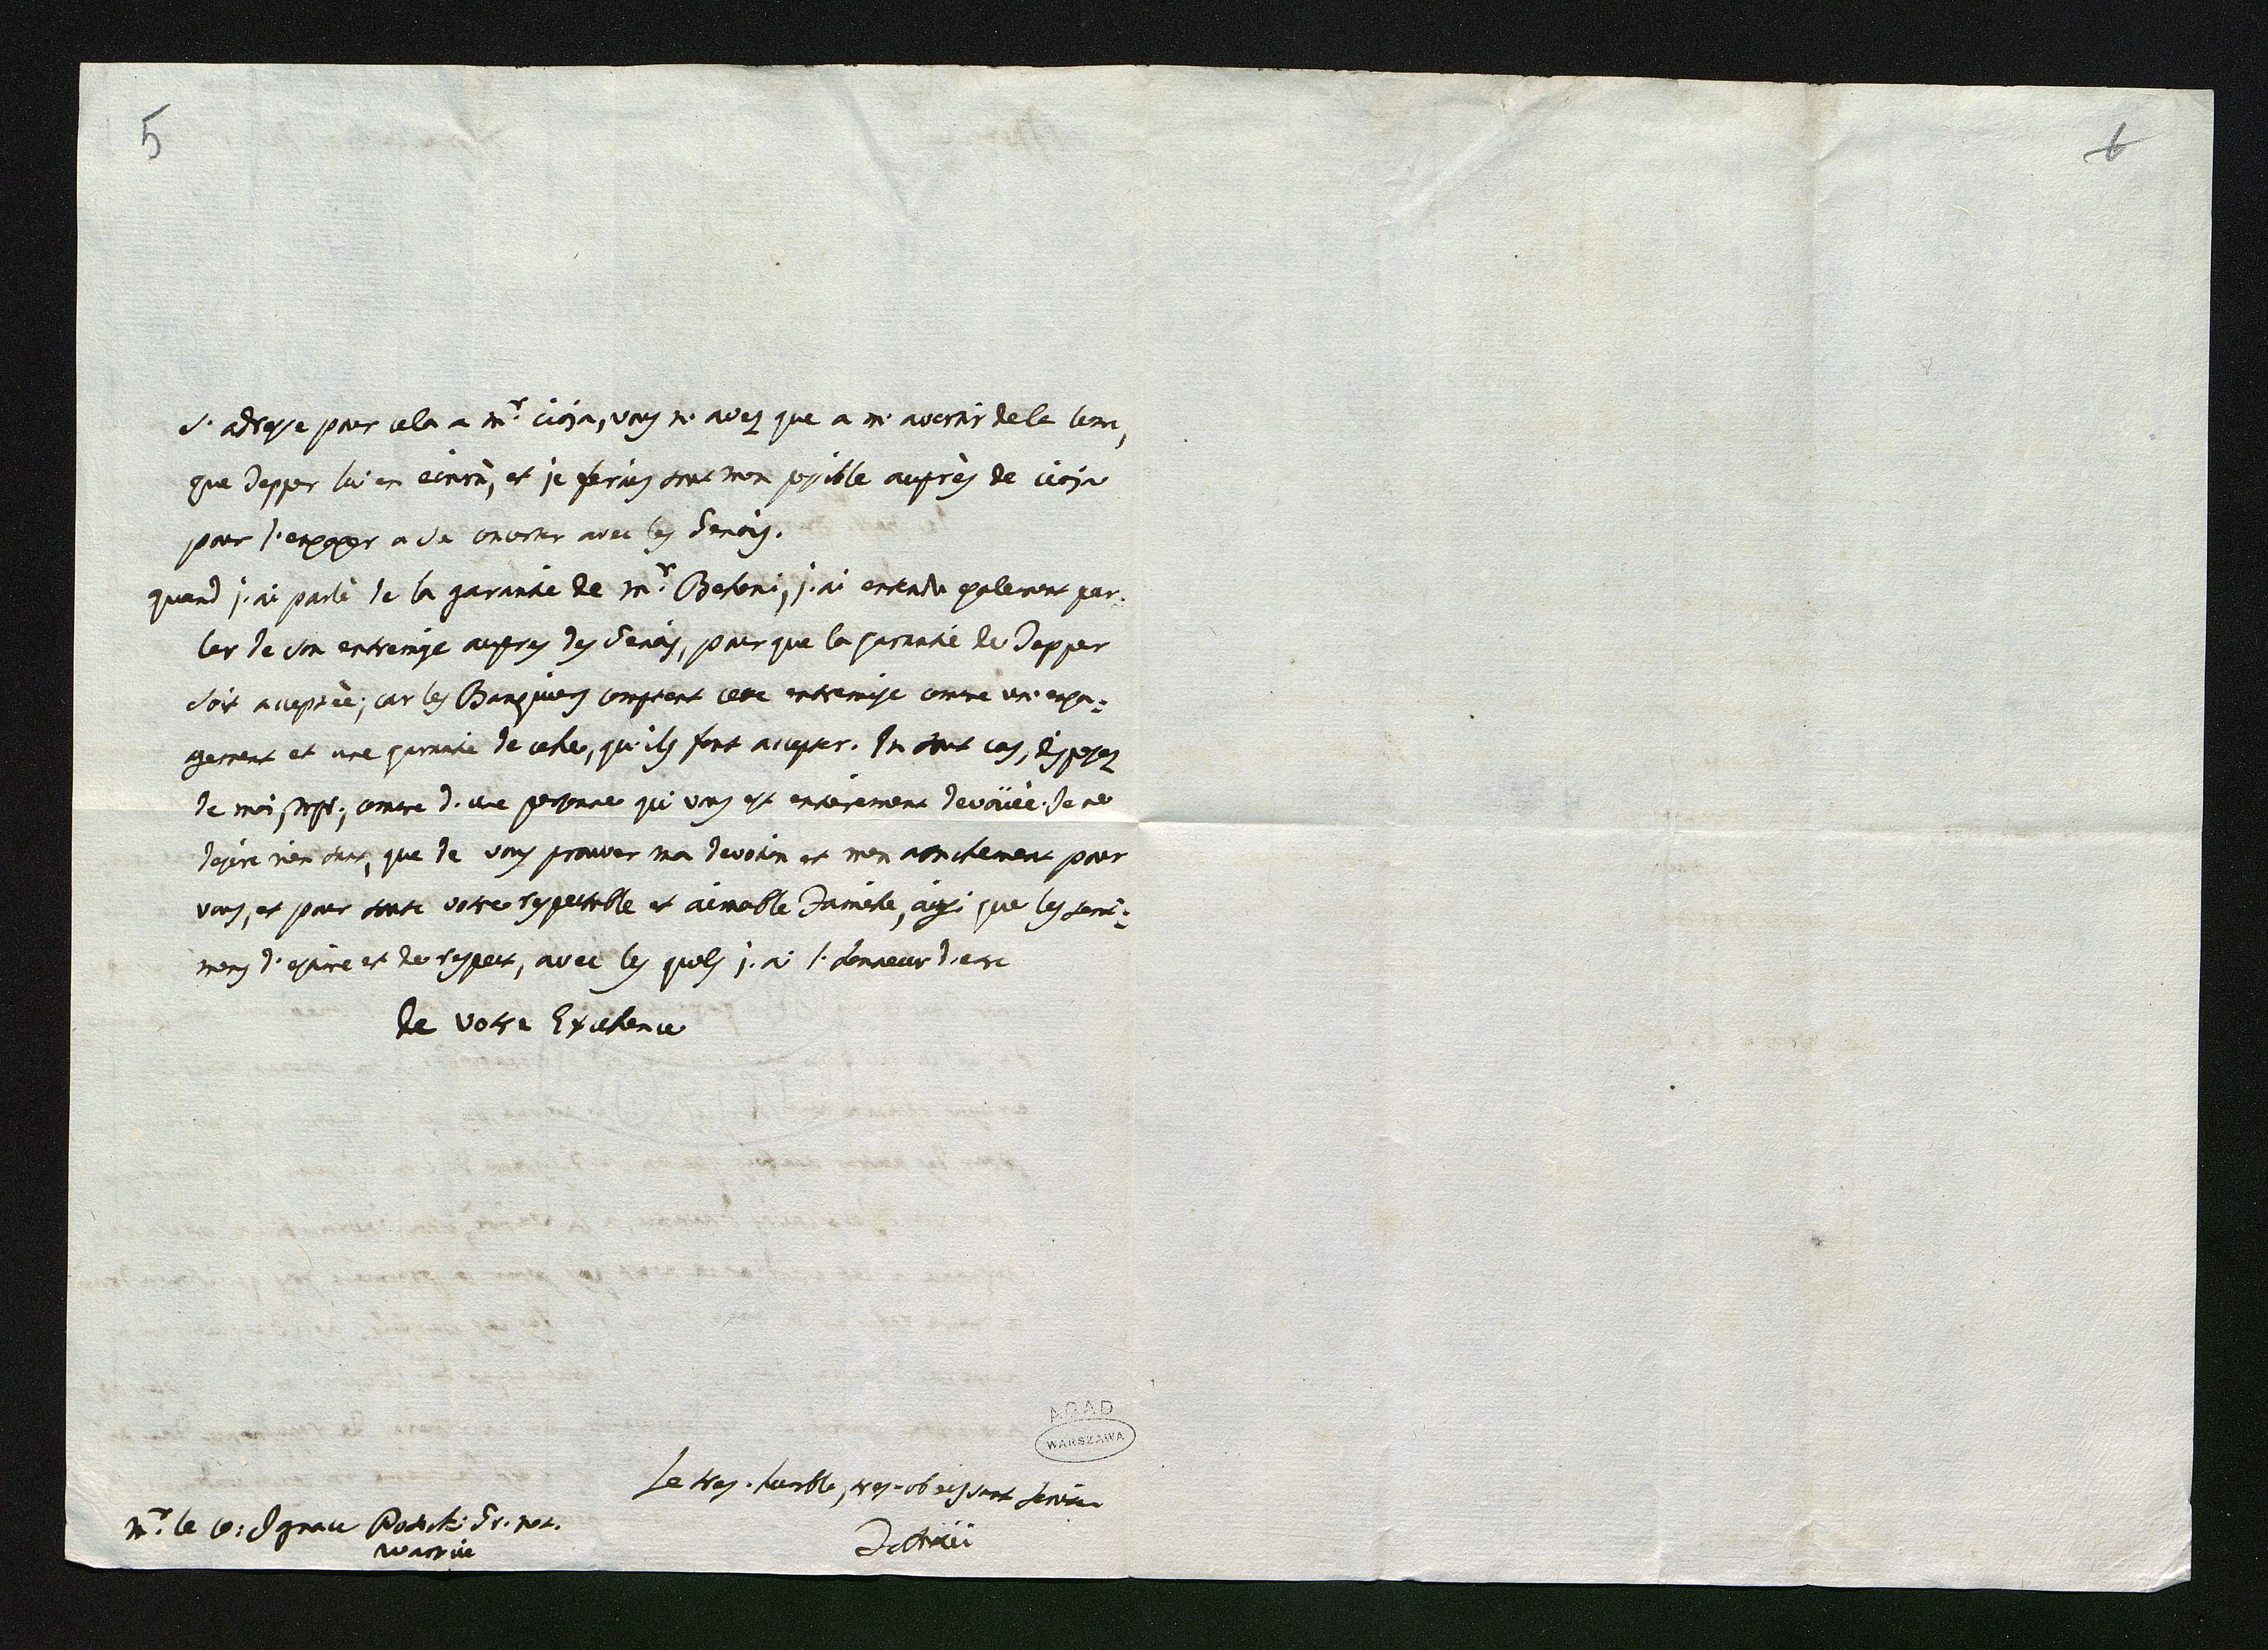 5
6
s'adresse pour cela a Mr. Cioja, vous n'avez que a m'avertir de la lettre,
que Tepper lui en ecrira, et je ferais tout mon possible auprès de Cioja
pour l'engager a se concerter avec les Genois.
quand j'ai parlè de la garantie de Mr. Betoni, j'ai entendu egalement par-
ler de son entremise aupres des Genois, pour que la garantie de Tepper
soit acceptèe; car les Banquiers comptent cette entremise comme un enga=
gement et une garantie de celle, qu'ils font accepter. En tout cas, disposez
de moi, comme d'une personne qui vous est entierement devoüèe. Je ne
desire rien tant, que de vous prouver ma devotion et mon attachement pour
vous, et pour toute votre respectable et aimable Famille, aissi que les senti=
mens d'estime et de respect, avec les quels j'ai l'honneur d'etre
de votre Excellence
AGAD
WARSZAWA
Le tres-humble, tres-obeissant serviteur
Mr. le Co: Ignace Potocki Gr. not.
Warsovie